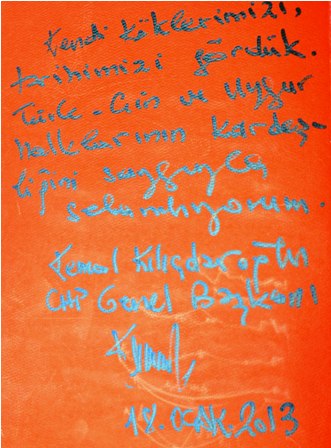 Kendi köklerimizi,
tarihimizi gördük.
Türk-Çin ve Uygur
Halklarının kardeş-
liğini saygıyla
selamlıyorum.
Kemal Kılıçdaroğlu
CHP Genel Başkanı
18. OCAK.2013